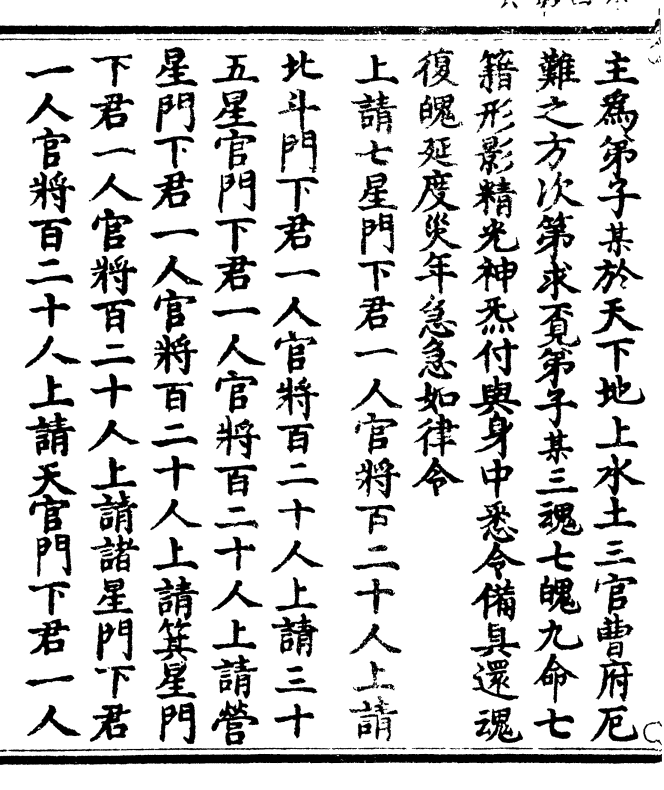 主爲第子某於天下地上水土三官曹府厄
難之方次第求覔第子某三魂七魄九命七
籍形影精光神炁付與身中悉令備具還魂
復魄延度災年急急如律令
上請七星門下君一人官將百二十人上請
北斗門下君一人官將百二十人上請三十
五星官門下君一人官將百二十人上請營
星門下君一人官將百二十人上請箕星門
下君一人官將百二十人上請諸星門下君
一人官將百二十人上請天官門下君一人